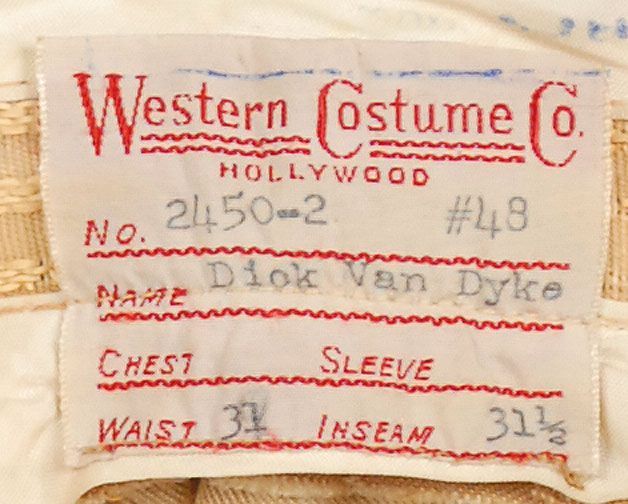 Western Costume Co.
HOLLYWOOD
No. 2450-2 #48
NAME Dick Van Dyke
CHEST SLEEVE
WAIST 31 INSEAM 31½